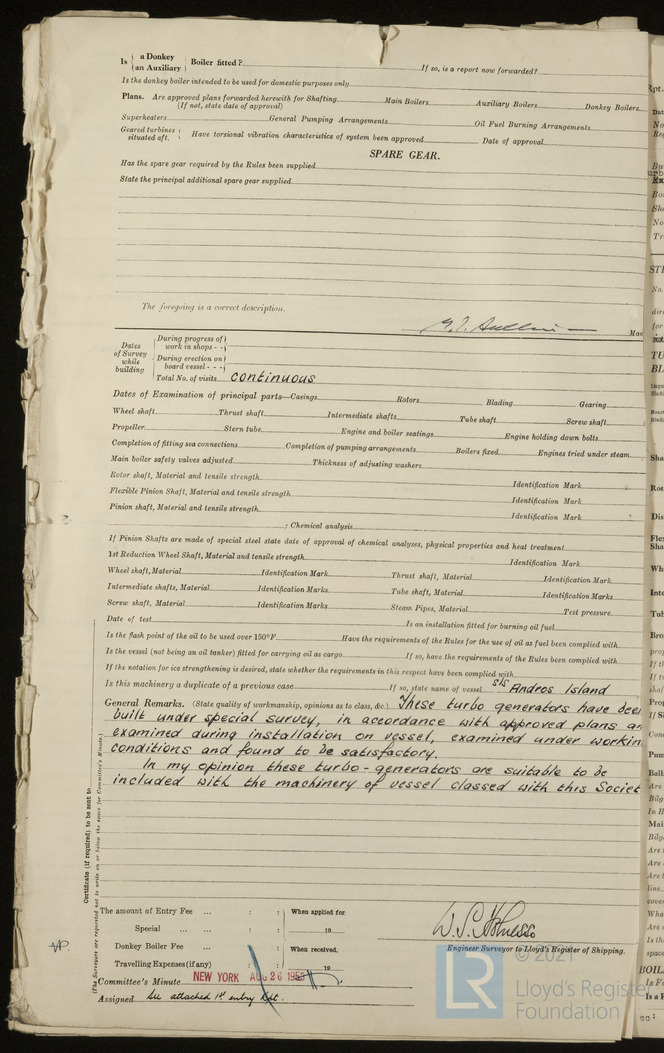 Is { a Donkey / an Auxiliary } Boiler fitted? If so, is a report now forwarded?
Is the donkey boiler intended to be used for domestic purposes only
Plans. Are approved plans forwarded herewith for Shafting Main Boilers Auxiliary Boilers Donkey Boilers
(If not, state date of approval)
Superheaters General Pumping Arrangements Oil Fuel Burning Arrangements
Geared turbines situated aft. } Have torsional vibration characteristics of system been approved Date of approval
SPARE GEAR.
Has the spare gear required by the Rules been supplied
State the principal additional spare gear supplied
The foregoing is a correct description.
Dates of Survey while building
During progress of work in shops - -
During erection on board vessel - - -
Total No. of visits continuous
Dates of Examination of principal parts—Casings Rotors Blading Gearing
Wheel shaft Thrust shaft Intermediate shafts Tube shaft Screw shaft
Propeller Stern tube Engine and boiler seatings Engine holding down bolts
Completion of fitting sea connections Completion of pumping arrangements Boilers fixed Engines tried under steam
Main boiler safety valves adjusted Thickness of adjusting washers
Rotor shaft, Material and tensile strength Identification Mark
Flexible Pinion Shaft, Material and tensile strength Identification Mark
Pinion shaft, Material and tensile strength Identification Mark
; Chemical analysis
If Pinion Shafts are made of special steel state date of approval of chemical analyses, physical properties and heat treatment
1st Reduction Wheel Shaft, Material and tensile strength Identification Mark
Wheel shaft, Material Identification Mark Thrust shaft, Material Identification Mark
Intermediate shafts, Material Identification Marks Tube shaft, Material Identification Marks
Screw shaft, Material Identification Marks Steam Pipes, Material Test pressure
Date of test Is an installation fitted for burning oil fuel
Is the flash point of the oil to be used over 150°F. Have the requirements of the Rules for the use of oil as fuel been complied with
Is the vessel (not being an oil tanker) fitted for carrying oil as cargo If so, have the requirements of the Rules been complied with
If the notation for ice strengthening is desired, state whether the requirements in this respect have been complied with
Is this machinery a duplicate of a previous case If so, state name of vessel S/S Andros Island
General Remarks. (State quality of workmanship, opinions as to class, &c.) These turbo generators have been
built under special survey, in accordance with approved plans an
examined during installation on vessel, examined under workin
conditions and found to be satisfactory.
In my opinion these turbo-generators are suitable to be
included with the machinery of vessel classed with this Societ
Certificate (if required) to be sent to
(The Surveyors are requested not to write on or below the space for Committee's Minute.)
The amount of Entry Fee ... : : When applied for
Special ... ... : : 19
Donkey Boiler Fee ... : : When received,
Travelling Expenses (if any) : : 19
Engineer Surveyor to Lloyd's Register of Shipping.
Committee's Minute NEW YORK AUG 26 1953
Assigned See attached 1st entry Rpt.
© 2021
LR
Lloyd's Register
Foundation